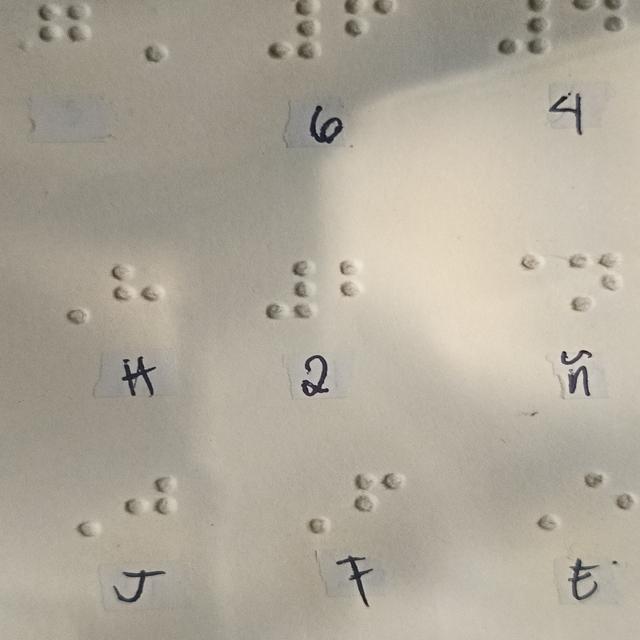 6 4
H 2 ñ
J F E